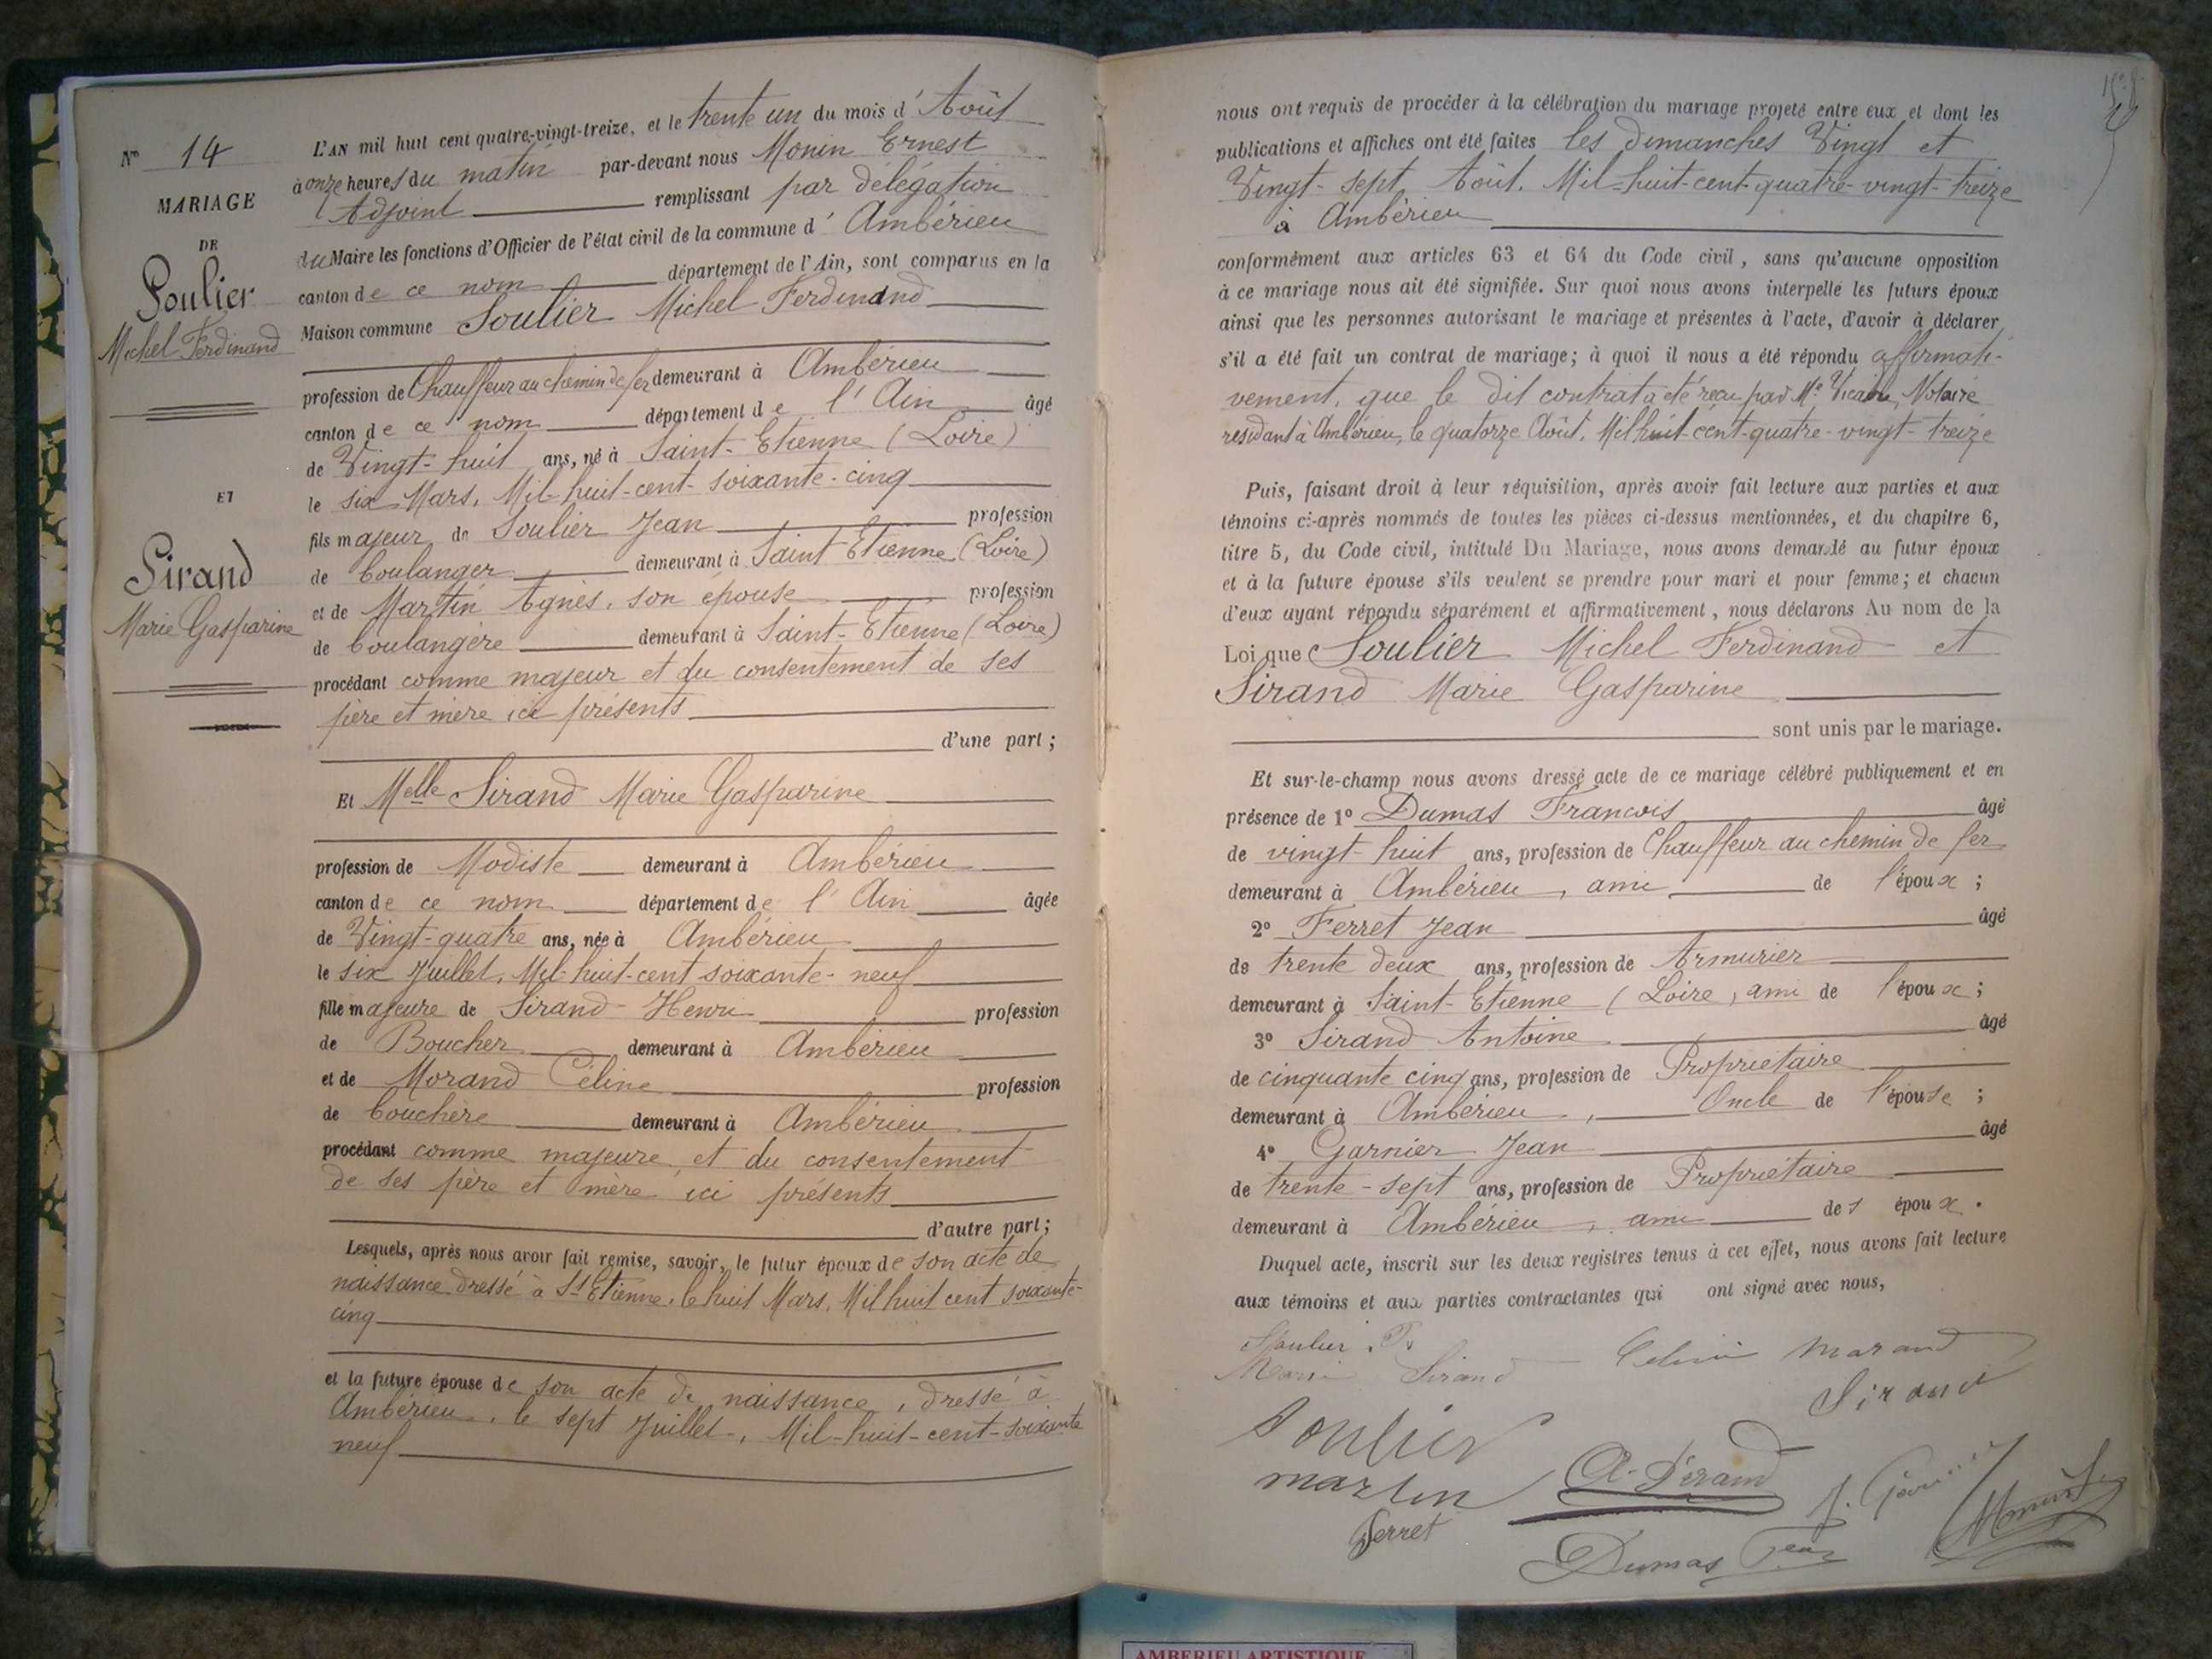 N° 14
MARIAGE
DE
Soulier
Michel Ferdinand
ET
Sirand
Marie Gasparine
L'AN mil huit cent quatre-vingt-treize, et le trente un du mois d'Août
à onze heures du matin par-devant nous Monin Ernest
Adjoint remplissant par délégation
du Maire les fonctions d'Officier de l'état civil de la commune d'Ambérieu
canton de ce nom département de l'Ain, sont comparus en la
Maison commune Soulier Michel Ferdinand
profession de Chauffeur au chemin de fer demeurant à Ambérieu
canton de ce nom département de l'Ain âgé
de Vingt-huit ans, né à Saint-Etienne (Loire)
le six Mars, Mil-huit-cent-soixante-cinq
fils majeur de Soulier Jean profession
de boulanger demeurant à Saint Etienne (Loire)
et de Martin Agnès, son épouse profession
de boulangère demeurant à Saint-Etienne (Loire)
procédant comme majeur et du consentement de ses
père et mère ici présents
d'une part;
Et Melle Sirand Marie Gasparine
profession de Modiste demeurant à Ambérieu
canton de ce nom département de l'Ain âgée
de Vingt-quatre ans, née à Ambérieu
le six Juillet, Mil-huit-cent soixante-neuf
fille majeure de Sirand Henri profession
de Boucher demeurant à Ambérieu
et de Morand Céline profession
de bouchère demeurant à Ambérieu
procédant comme majeure et du consentement
de ses père et mère ici présents
d'autre part;
Lesquels, après nous avoir fait remise, savoir, le futur époux de son acte de
naissance dressé à St Etienne, le huit Mars, Mil huit cent soixante-
cinq
et la future épouse de son acte de naissance, dressé à
Ambérieu, le sept Juillet, Mil-huit-cent-soixante
neuf
nous ont requis de procéder à la célébration du mariage projeté entre eux et dont les
publications et affiches ont été faites les dimanches Vingt et
Vingt-sept Août, Mil-huit-cent-quatre-vingt-treize
à Ambérieu
conformément aux articles 63 et 64 du Code civil, sans qu'aucune opposition
à ce mariage nous ait été signifiée. Sur quoi nous avons interpellé les futurs époux
ainsi que les personnes autorisant le mariage et présentes à l'acte, d'avoir à déclarer
s'il a été fait un contrat de mariage; à quoi il nous a été répondu affirmati-
vement, que le dit contrat a été reçu par Me Notaire
résidant à Ambérieu, le quatorze Août, Mil huit-cent-quatre-vingt-treize
Puis, faisant droit à leur réquisition, après avoir fait lecture aux parties et aux
témoins ci-après nommés de toutes les pièces ci-dessus mentionnées, et du chapitre 6,
titre 5, du Code civil, intitulé Du Mariage, nous avons demandé au futur époux
et à la future épouse s'ils veulent se prendre pour mari et pour femme; et chacun
d'eux ayant répondu séparément et affirmativement, nous déclarons Au nom de la
Loi que Soulier Michel Ferdinand et
Sirand Marie Gasparine
sont unis par le mariage.
Et sur-le-champ nous avons dressé acte de ce mariage célébré publiquement et en
présence de 1° Dumas Francois âgé
de vingt-huit ans, profession de Chauffeur au chemin de fer
demeurant à Ambérieu, ami de l'époux;
2° Ferret Jean âgé
de trente deux ans, profession de Armurier
demeurant à Saint-Etienne (Loire, ami de l'époux;
3° Sirand Antoine âgé
de cinquante cinq ans, profession de Propriétaire
demeurant à Ambérieu, Oncle de l'épouse;
4° Garnier Jean âgé
de trente-sept ans, profession de Propriétaire
demeurant à Ambérieu, ami des époux.
Duquel acte, inscrit sur les deux registres tenus à cet effet, nous avons fait lecture
aux témoins et aux parties contractantes qui ont signé avec nous,
Marie Sirand Morand
Sirand
Soulier
Martin
A. Sirand
Ferret
Dumas
AMBERIEU ARTISTIQUE